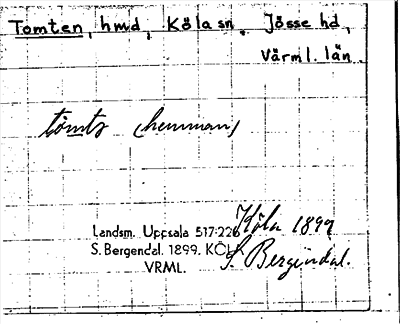 Tomten, hmd, Köla sn. Jösse hd,
Värml. län.
tömtz (hemman)
Köla 1899
S. Bergendal.
Landsm. Uppsala 517:226
S. Bergendal. 1899. KÖLA
VRML.